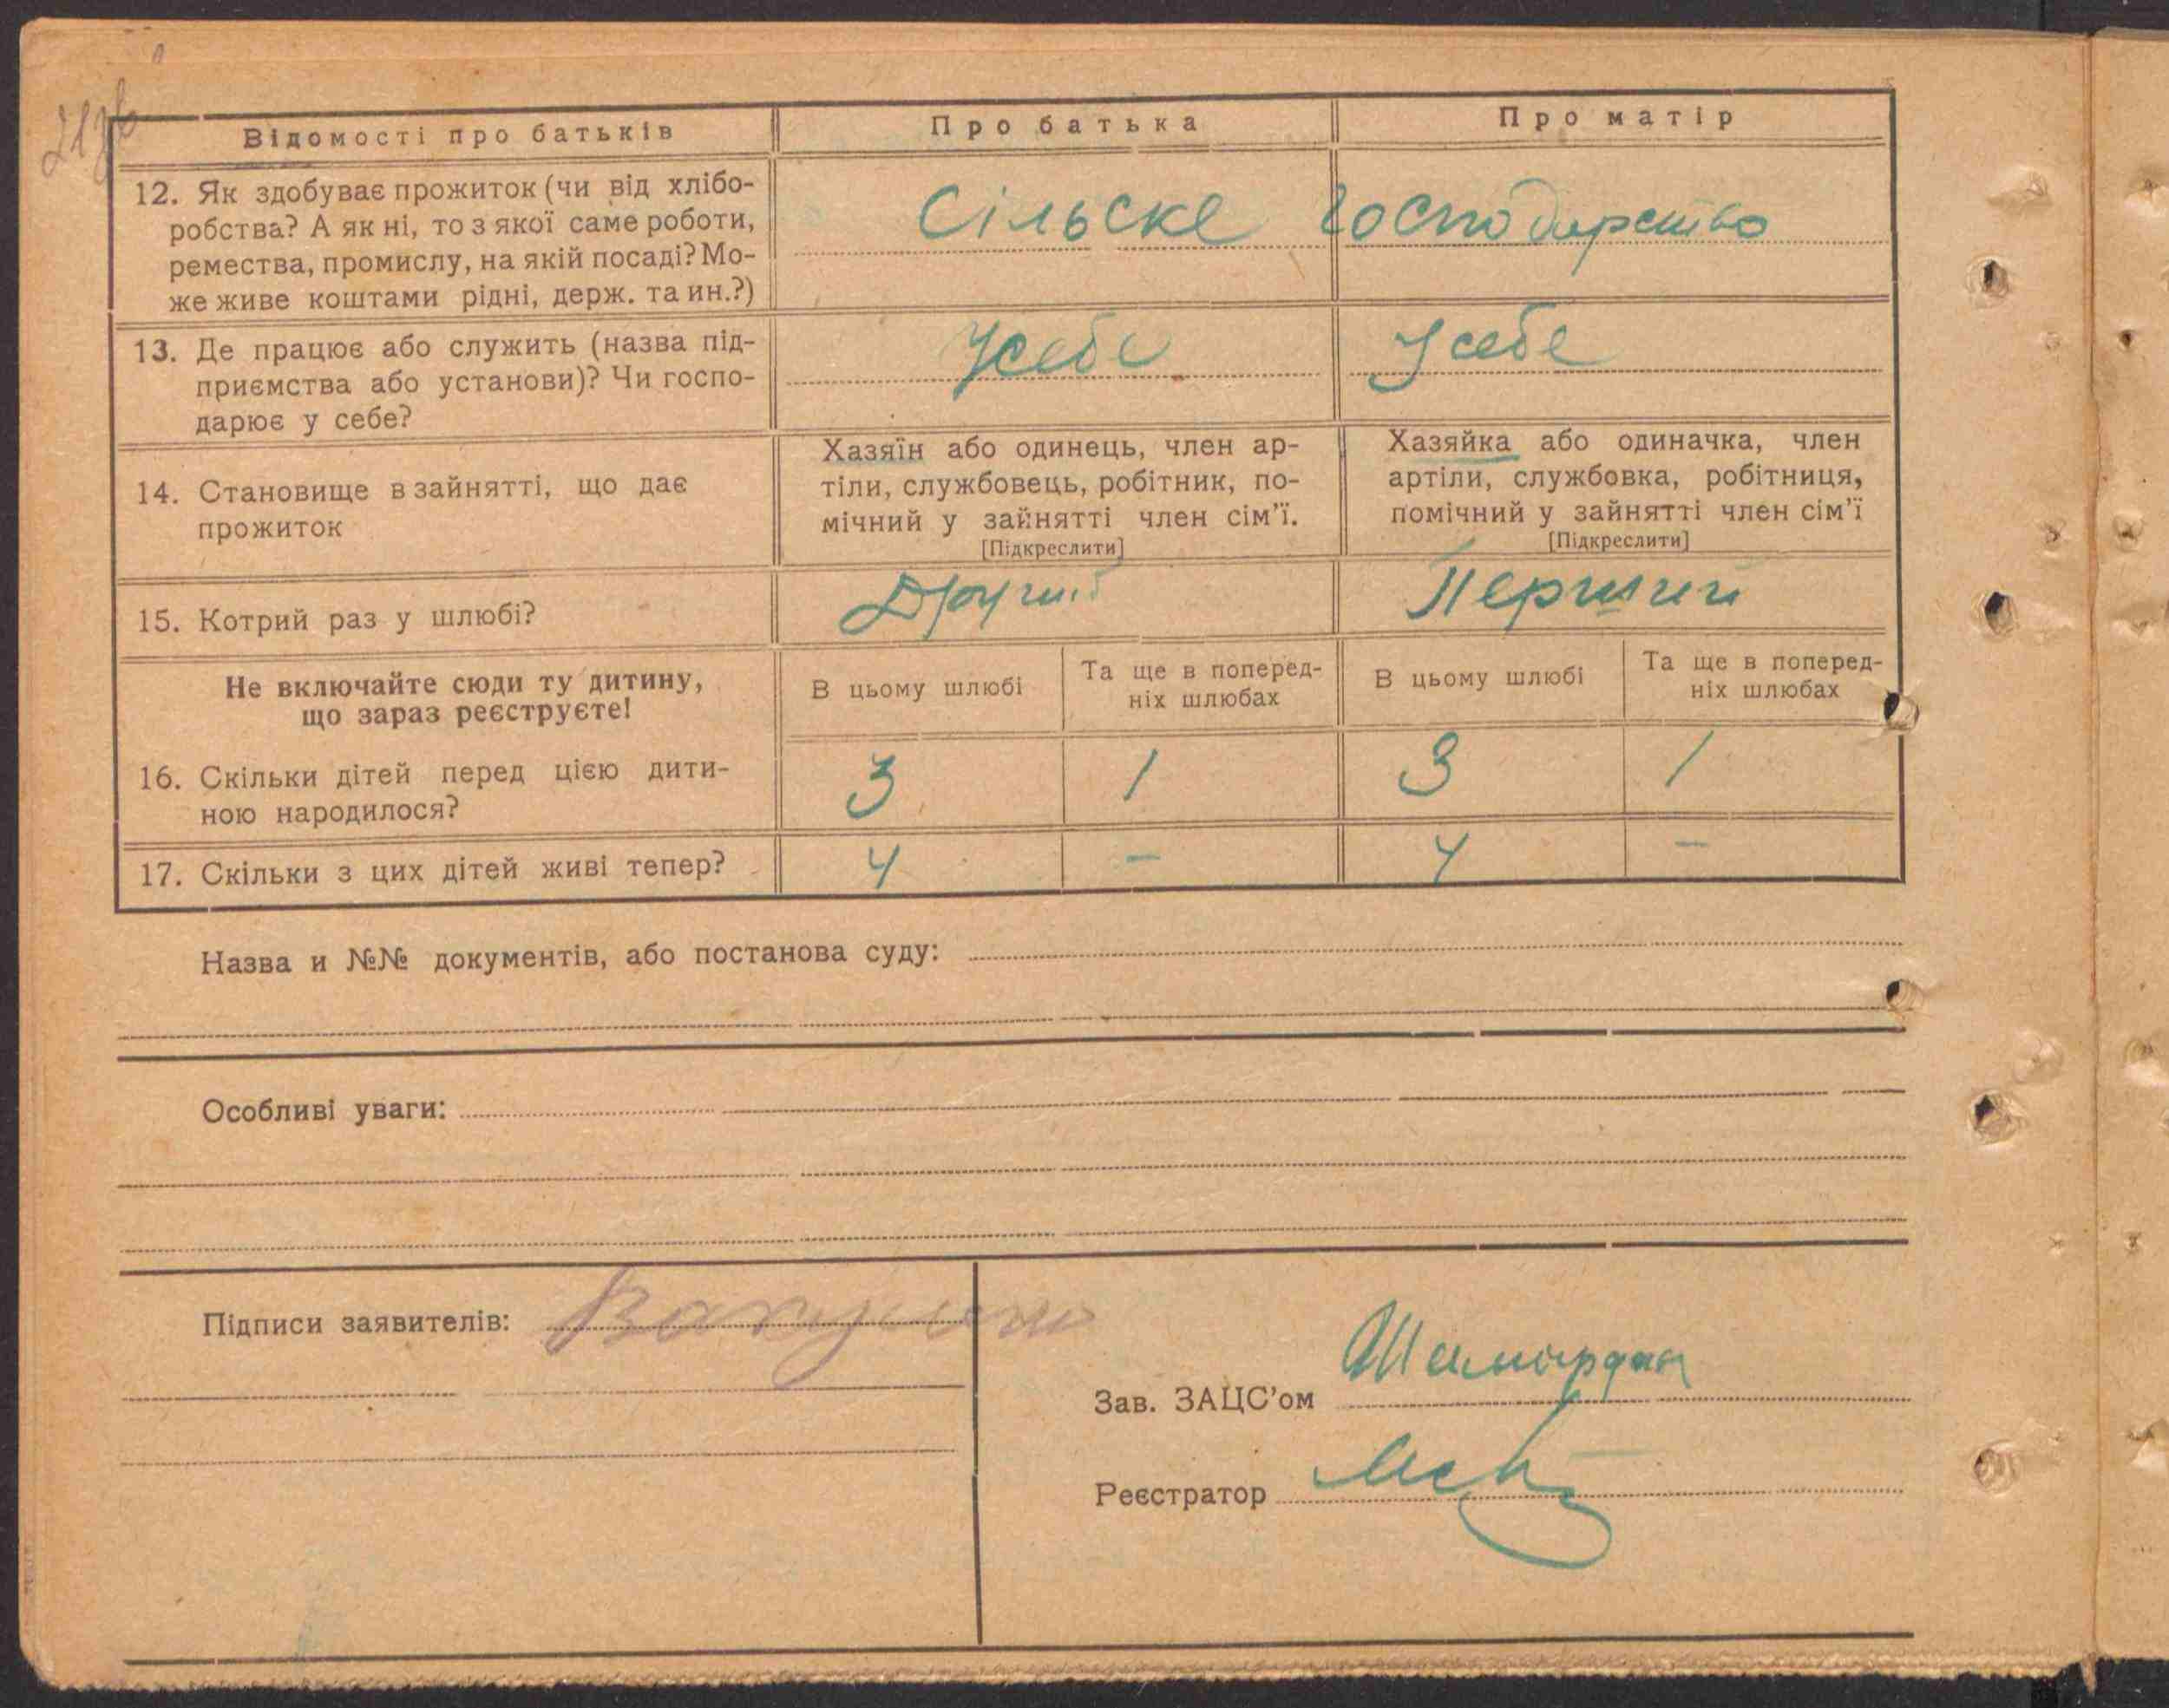 Відомості про батьків
Про батька
Про матір
12. Як здобуває прожиток (чи від хлібо-
робства? А як ні, то з якої саме роботи,
ремества, промислу, на якій посаді? Мо-
же живе коштами рідні, держ. та ин.?)
Сільске господарство
13. Де працює або служить (назва під-
приємства або установи)? Чи госпо-
дарює у себе?
Усебе
Усебе
14. Становище в зайнятті, що дає
прожиток
Хазяїн або одинець, член ар-
тіли, службовець, робітник, по-
мічний у зайнятті член сім'ї.
[Підкреслити]
Хазяйка або одиначка, член
артіли, службовка, робітниця,
помічний у зайнятті член сім'ї
[Підкреслити]
15. Котрий раз у шлюбі?
Другий
Перший
Не включайте сюди ту дитину,
що зараз реєструєте!
В цьому шлюбі
Та ще в поперед-
ніх шлюбах
В цьому шлюбі
Та ще в поперед-
ніх шлюбах
16. Скільки дітей перед цією дити-
ною народилося?
3 1 3 1
17. Скільки з цих дітей живі тепер?
4 - 4 -
Назва и №№ документів, або постанова суду:
Особливі уваги:
Підписи заявителів:
Зав. ЗАЦС'ом
Реєстратор